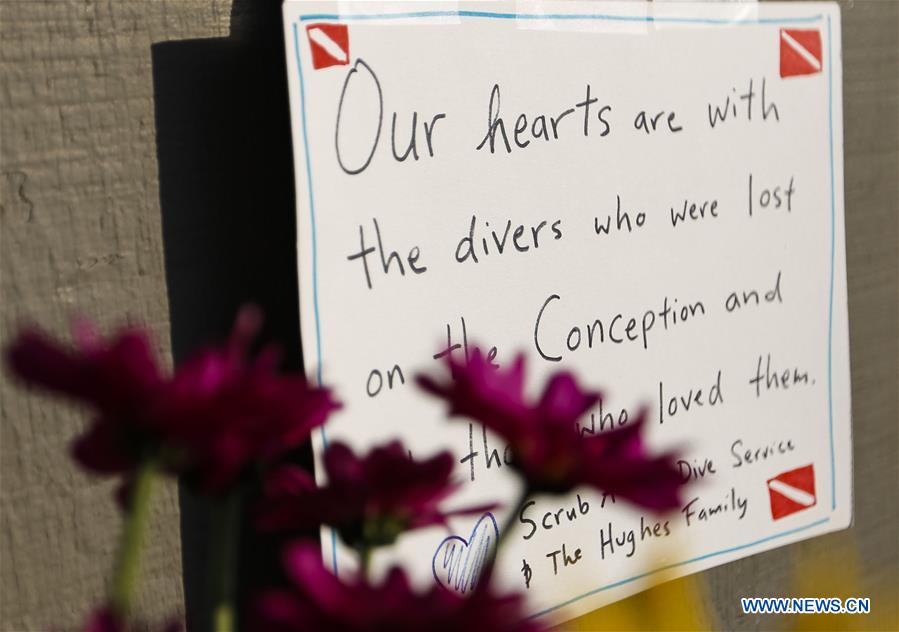 Our hearts are with
the divers who were lost
on the Conception and
who loved them.
Scrub Dive Service
& The Hughes Family
WWW.NEWS.CN